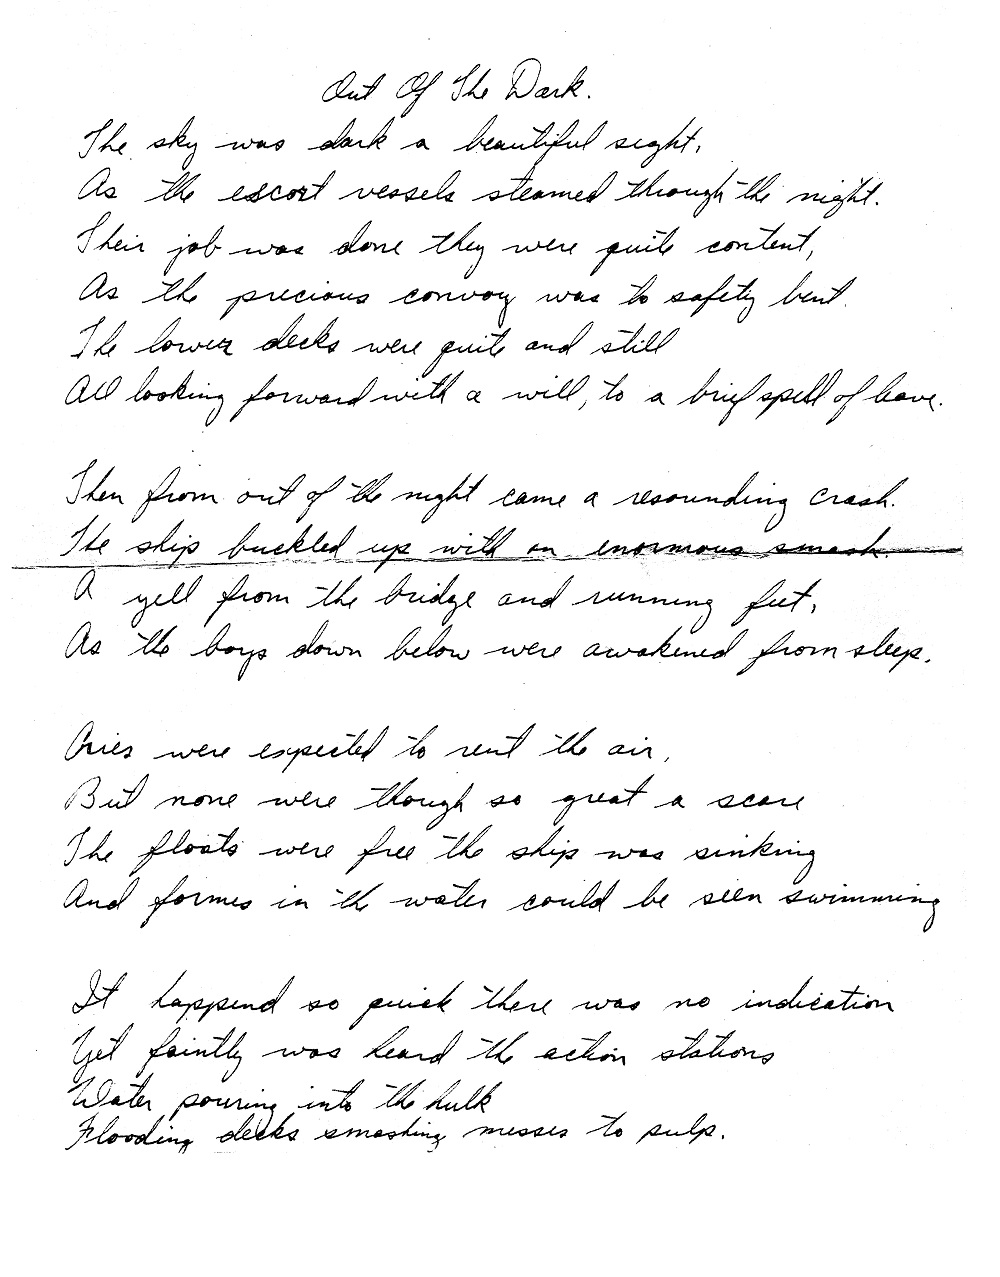 Out Of The Dark.
The sky was dark a beautiful sight,
As the escort vessels steamed through the night.
Their job was done they were quite content,
As the precious convoy was to safety bent.
The lower decks were quite and still
All looking forward with a will, to a brief spell of leave.
Then from out of the night came a resounding crash.
The ship buckled up with an enormous smash.
A yell from the bridge and running feet,
As the boys down below were awakened from sleep.
Cries were expected to rent the air,
But none were though so great a scare
The floats were free the ship was sinking
And formes in the water could be seen swimming
It happend so quick there was no indication
Yet faintly was heard the action stations
Water pouring into the hulk
Flooding decks smashing messes to pulp.